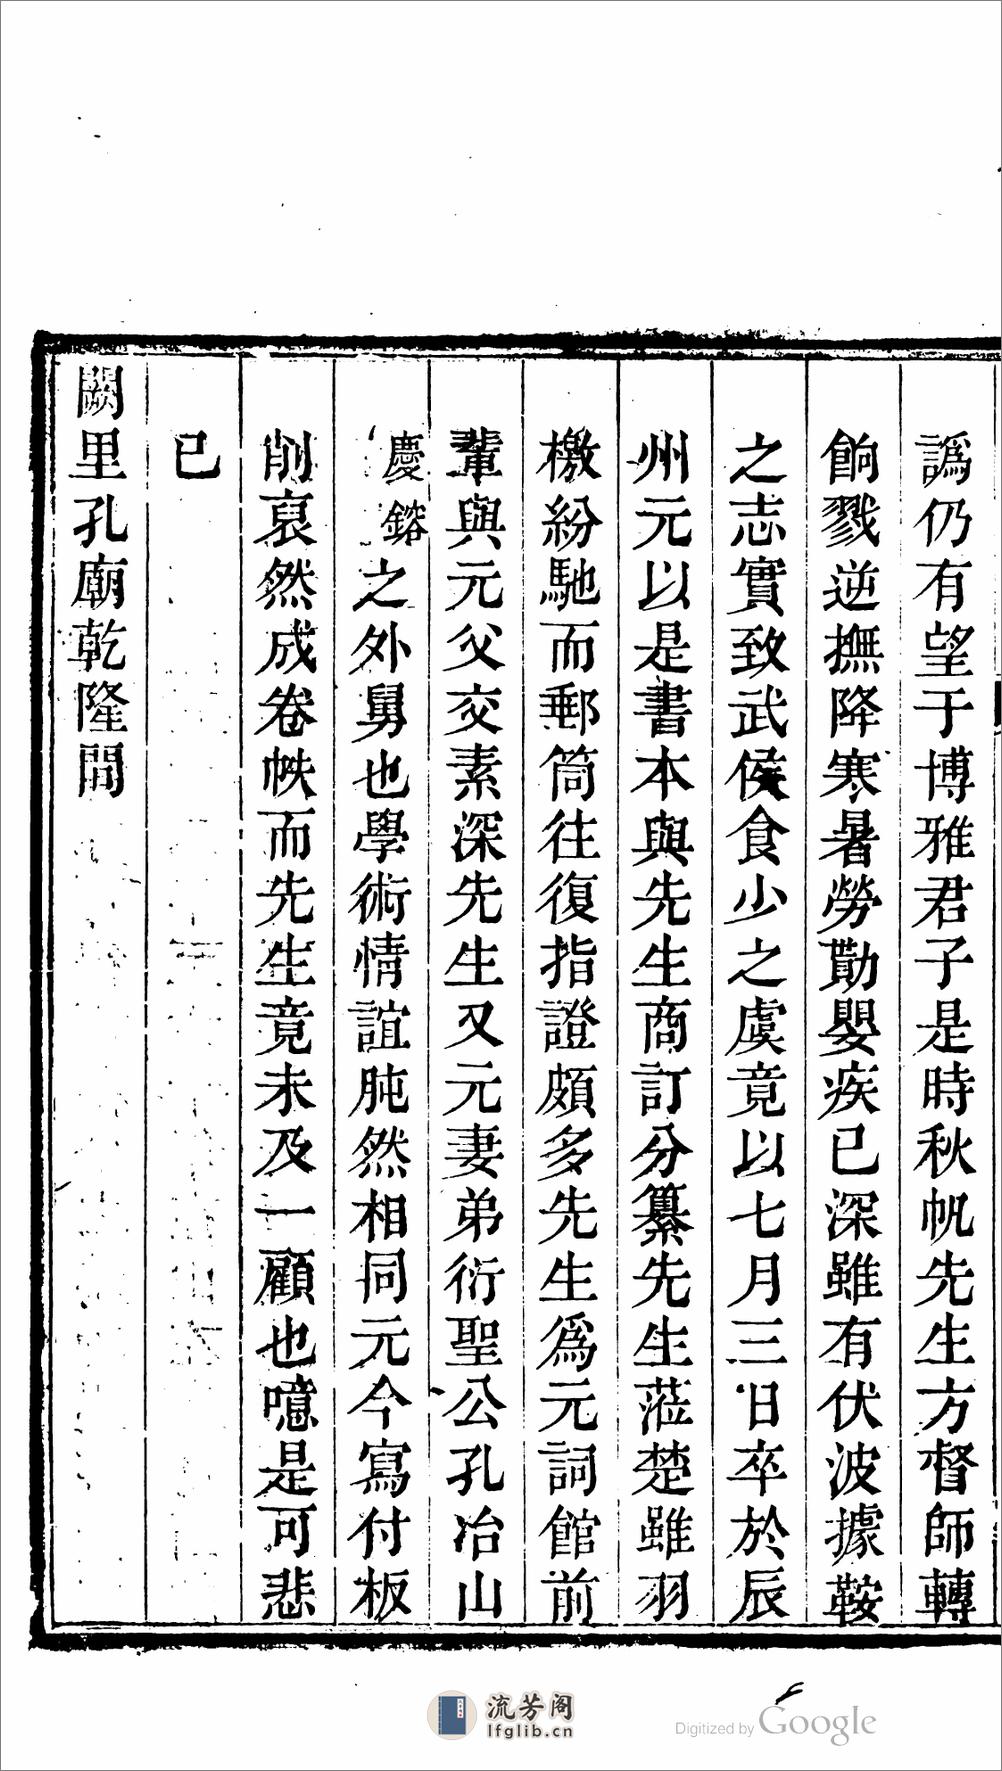 譌仍有望于博雅君子是時秋帆先生方督師轉
餉戮逆撫降寒暑勞勩嬰疾已深雖有伏波據鞍
之志實致武侯食少之虞竟以七月三日卒於辰
州元以是書本與先生商訂分纂先生蒞楚雖羽
檄紛馳而郵筒往復指證頗多先生爲元詞館前
輩與元父交素深先生又元妻弟衍聖公孔冶山
慶鎔之外舅也學術情誼肫然相同元今寫付板
削裒然成卷帙而先生竟未及一顧也噫是可悲
已
闕里孔廟乾隆間
流芳阁
lfglib.cn
Digitized by Google